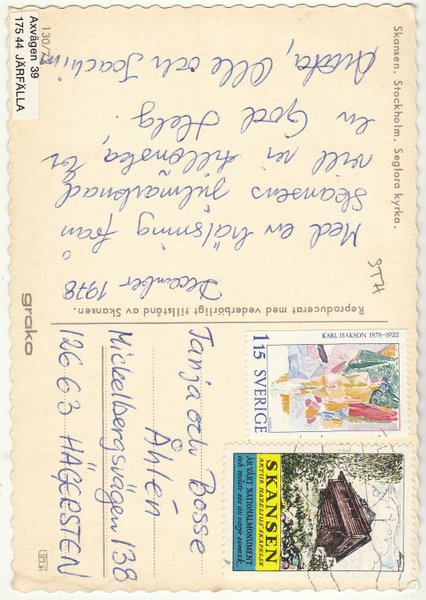 Skansen. Stockholm. Seglora kyrka.
130/73
Axvägen 39
175 44 JÄRFÄLLA
December 1978
Med en hälsning från
Skansens julmarknad
vill vi tillönska Er
en God Helg.
Olle och Joachim
STH
Reproducerat med vederbörligt tillstånd av Skansen.
grako
Tanja och Bosse
Åhlén
Mickelbergsvägen 138
126 63 HÄGERSTEN
KARL ISAKSON 1878-1922
1.15 SVERIGE
SKANSEN
ARTUR HAZELIUS SKAPELSE
ÄR VÅRT NATIONALMONUMENT
och måste oss av varje svensk.